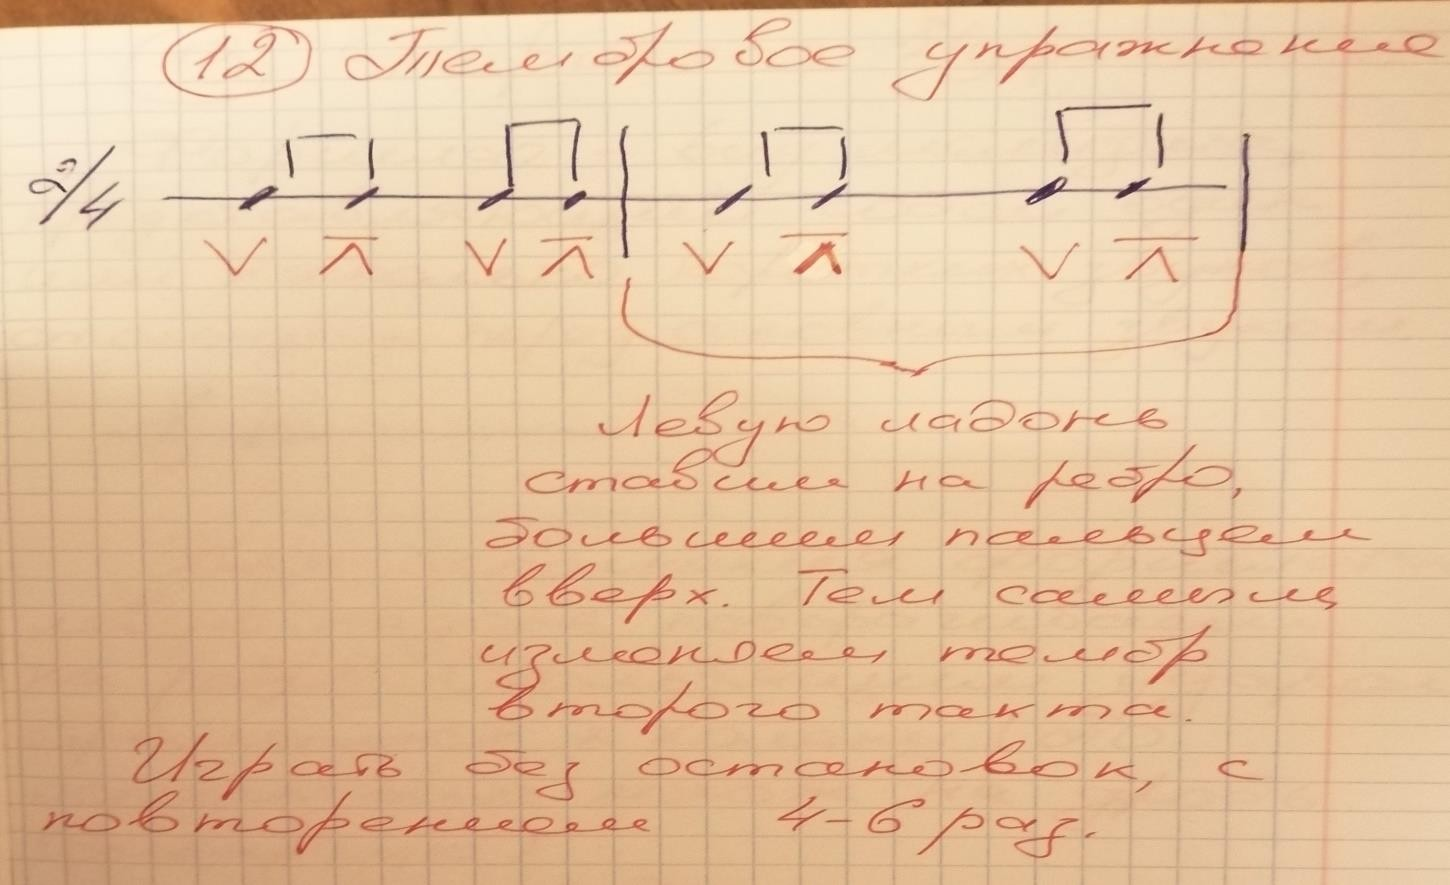 12 Тембровое упражнение
2/4
V Λ V Λ V Λ V Λ
Левую ладонь
ставим на ребро,
большим пальцем
вверх. Тем самым
изменяем тембр
второго такта.
Играть без остановок, с
повторением 4-6 раз.